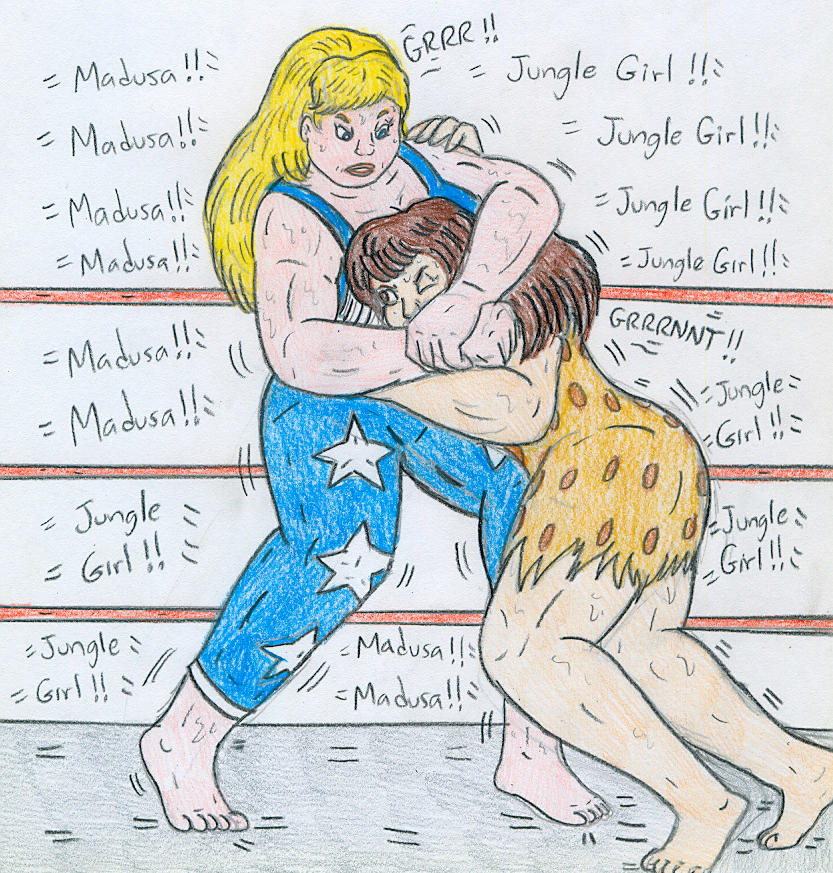 GRRR!!
Madusa!!
Jungle Girl!!
Madusa!!
Jungle Girl!!
Madusa!!
Jungle Girl!!
Madusa!!
Jungle Girl!!
GRRRNNT!!
Madusa!!
Madusa!!
Jungle
Girl!!
Jungle
Girl!!
Jungle
Girl!!
Jungle
Girl!!
Madusa!!
Madusa!!